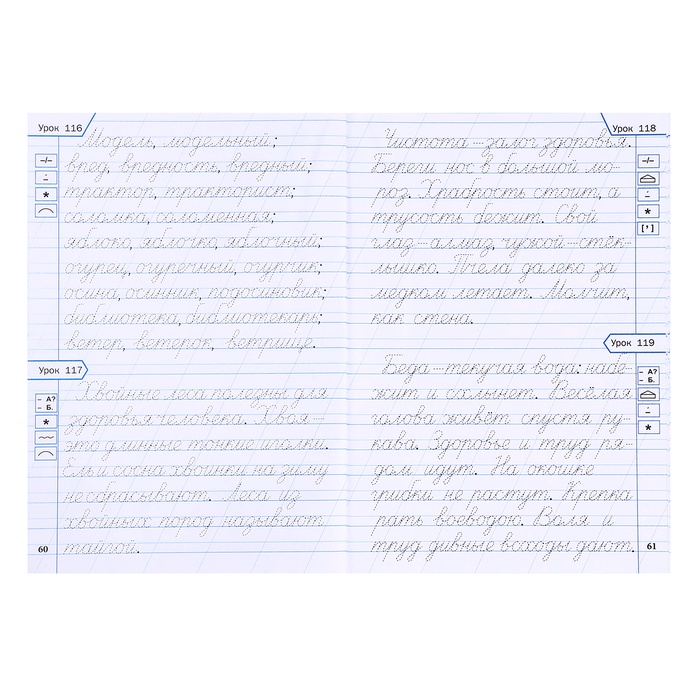 Урок 116
Модель, модельный;
вред, вредность, вредный;
трактор, тракторист;
соломка, соломенная;
яблоко, яблочко, яблочный;
огурец, огуречный, огурчик;
осина, осинник, подосиновик;
библиотека, библиотекарь;
ветер, ветерок, ветрище.
Урок 117
– А?
– Б.
Хвойные леса полезны для
здоровья человека. Хвоя –
это длинные тонкие иголки.
Ель и сосна хвоинки на зиму
не сбрасывают. Леса из
хвойных пород называют
тайгой.
60
Урок 118
[']
Чистота – залог здоровья.
Береги нос в большой мо-
роз. Храбрость стоит, а
трусость бежит. Свой
глаз – алмаз, чужой – стёк-
лышко. Пчела далеко за
медком летает. Молчит,
как стена.
Урок 119
– А?
– Б.
Беда – текучая вода: набе-
жит и схлынет. Весёлая
голова живёт спустя ру-
кава. Здоровье и труд ря-
дом идут. На окошке
грибки не растут. Крепка
рать воеводою. Воля и
труд дивные всходы дают.
61